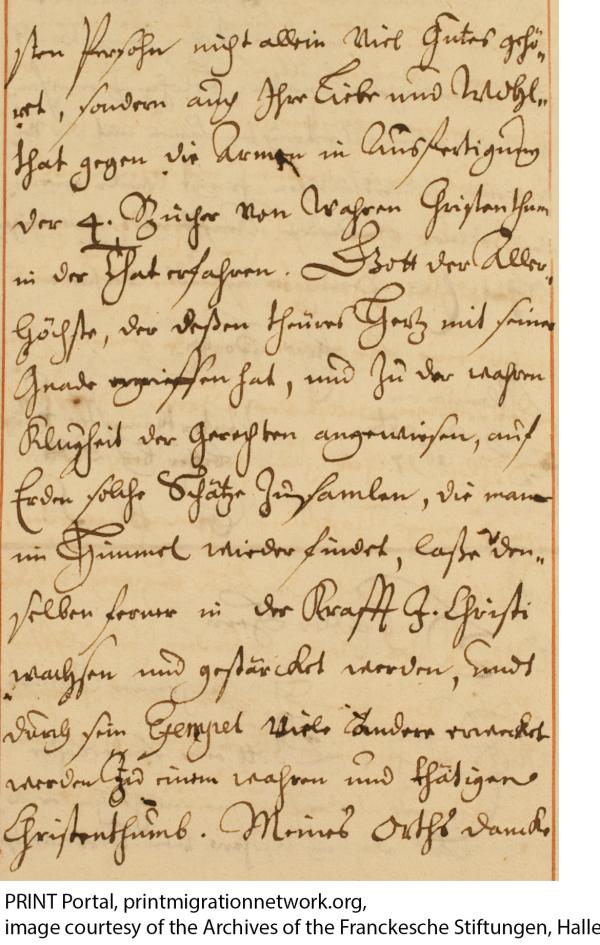 sten Persohn nicht allein Viel Gutes gehö-
ret, sondern auch Ihre Liebe und Wohl-
that gegen die Armen in Ausfertigung
der 4. Bücher von Wahren Christenthum
in der That erfahren. Gott der Aller-
höchste, der deßen theüres Hertz mit seiner
Gnade ergrieffen hat, und zu der wahren
Klugheit der Gerechten angewiesen, auf
Erden solche Schätze zu samlen, die man
im Himmel wieder findet, laße den-
selben ferner in der Krafft J. Christi
wachsen und gestärcket werden, undt
durch sein Exempel Viele Andere erwecket
werden zu einem wahren und thätigen
Christenthumb. Meines Orths dancke
PRINT Portal, printmigrationnetwork.org,
image courtesy of the Archives of the Franckesche Stiftungen, Halle